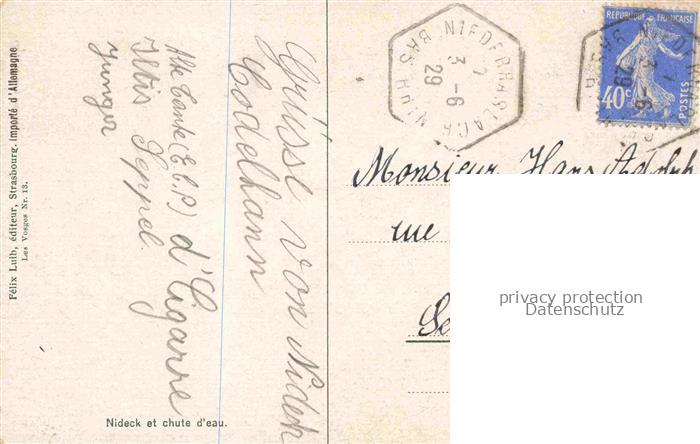 Félix Luib, éditeur, Strasbourg. Importé d'Allemagne
Les Vosges Nr. 13.
Nideck et chute d'eau.
Grüsse von Nideck
Alte Tante (E.C.P.) d'Cigarre
Iltis Seppel
Junger
NIEDERHASLACH
BAS RHIN
3-6
29
REPUBLIQUE FRANÇAISE
40c
POSTES
Monsieur Hans Adolph
rue
privacy protection
Datenschutz